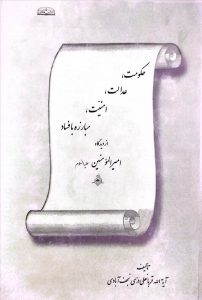 حکومت،
عدالت،
امنیت،
مبارزه با فساد
از دیدگاه
امیرالمؤمنین علیه‌السلام
تألیف
آیة الله قربانعلی دری نجف‌آبادی